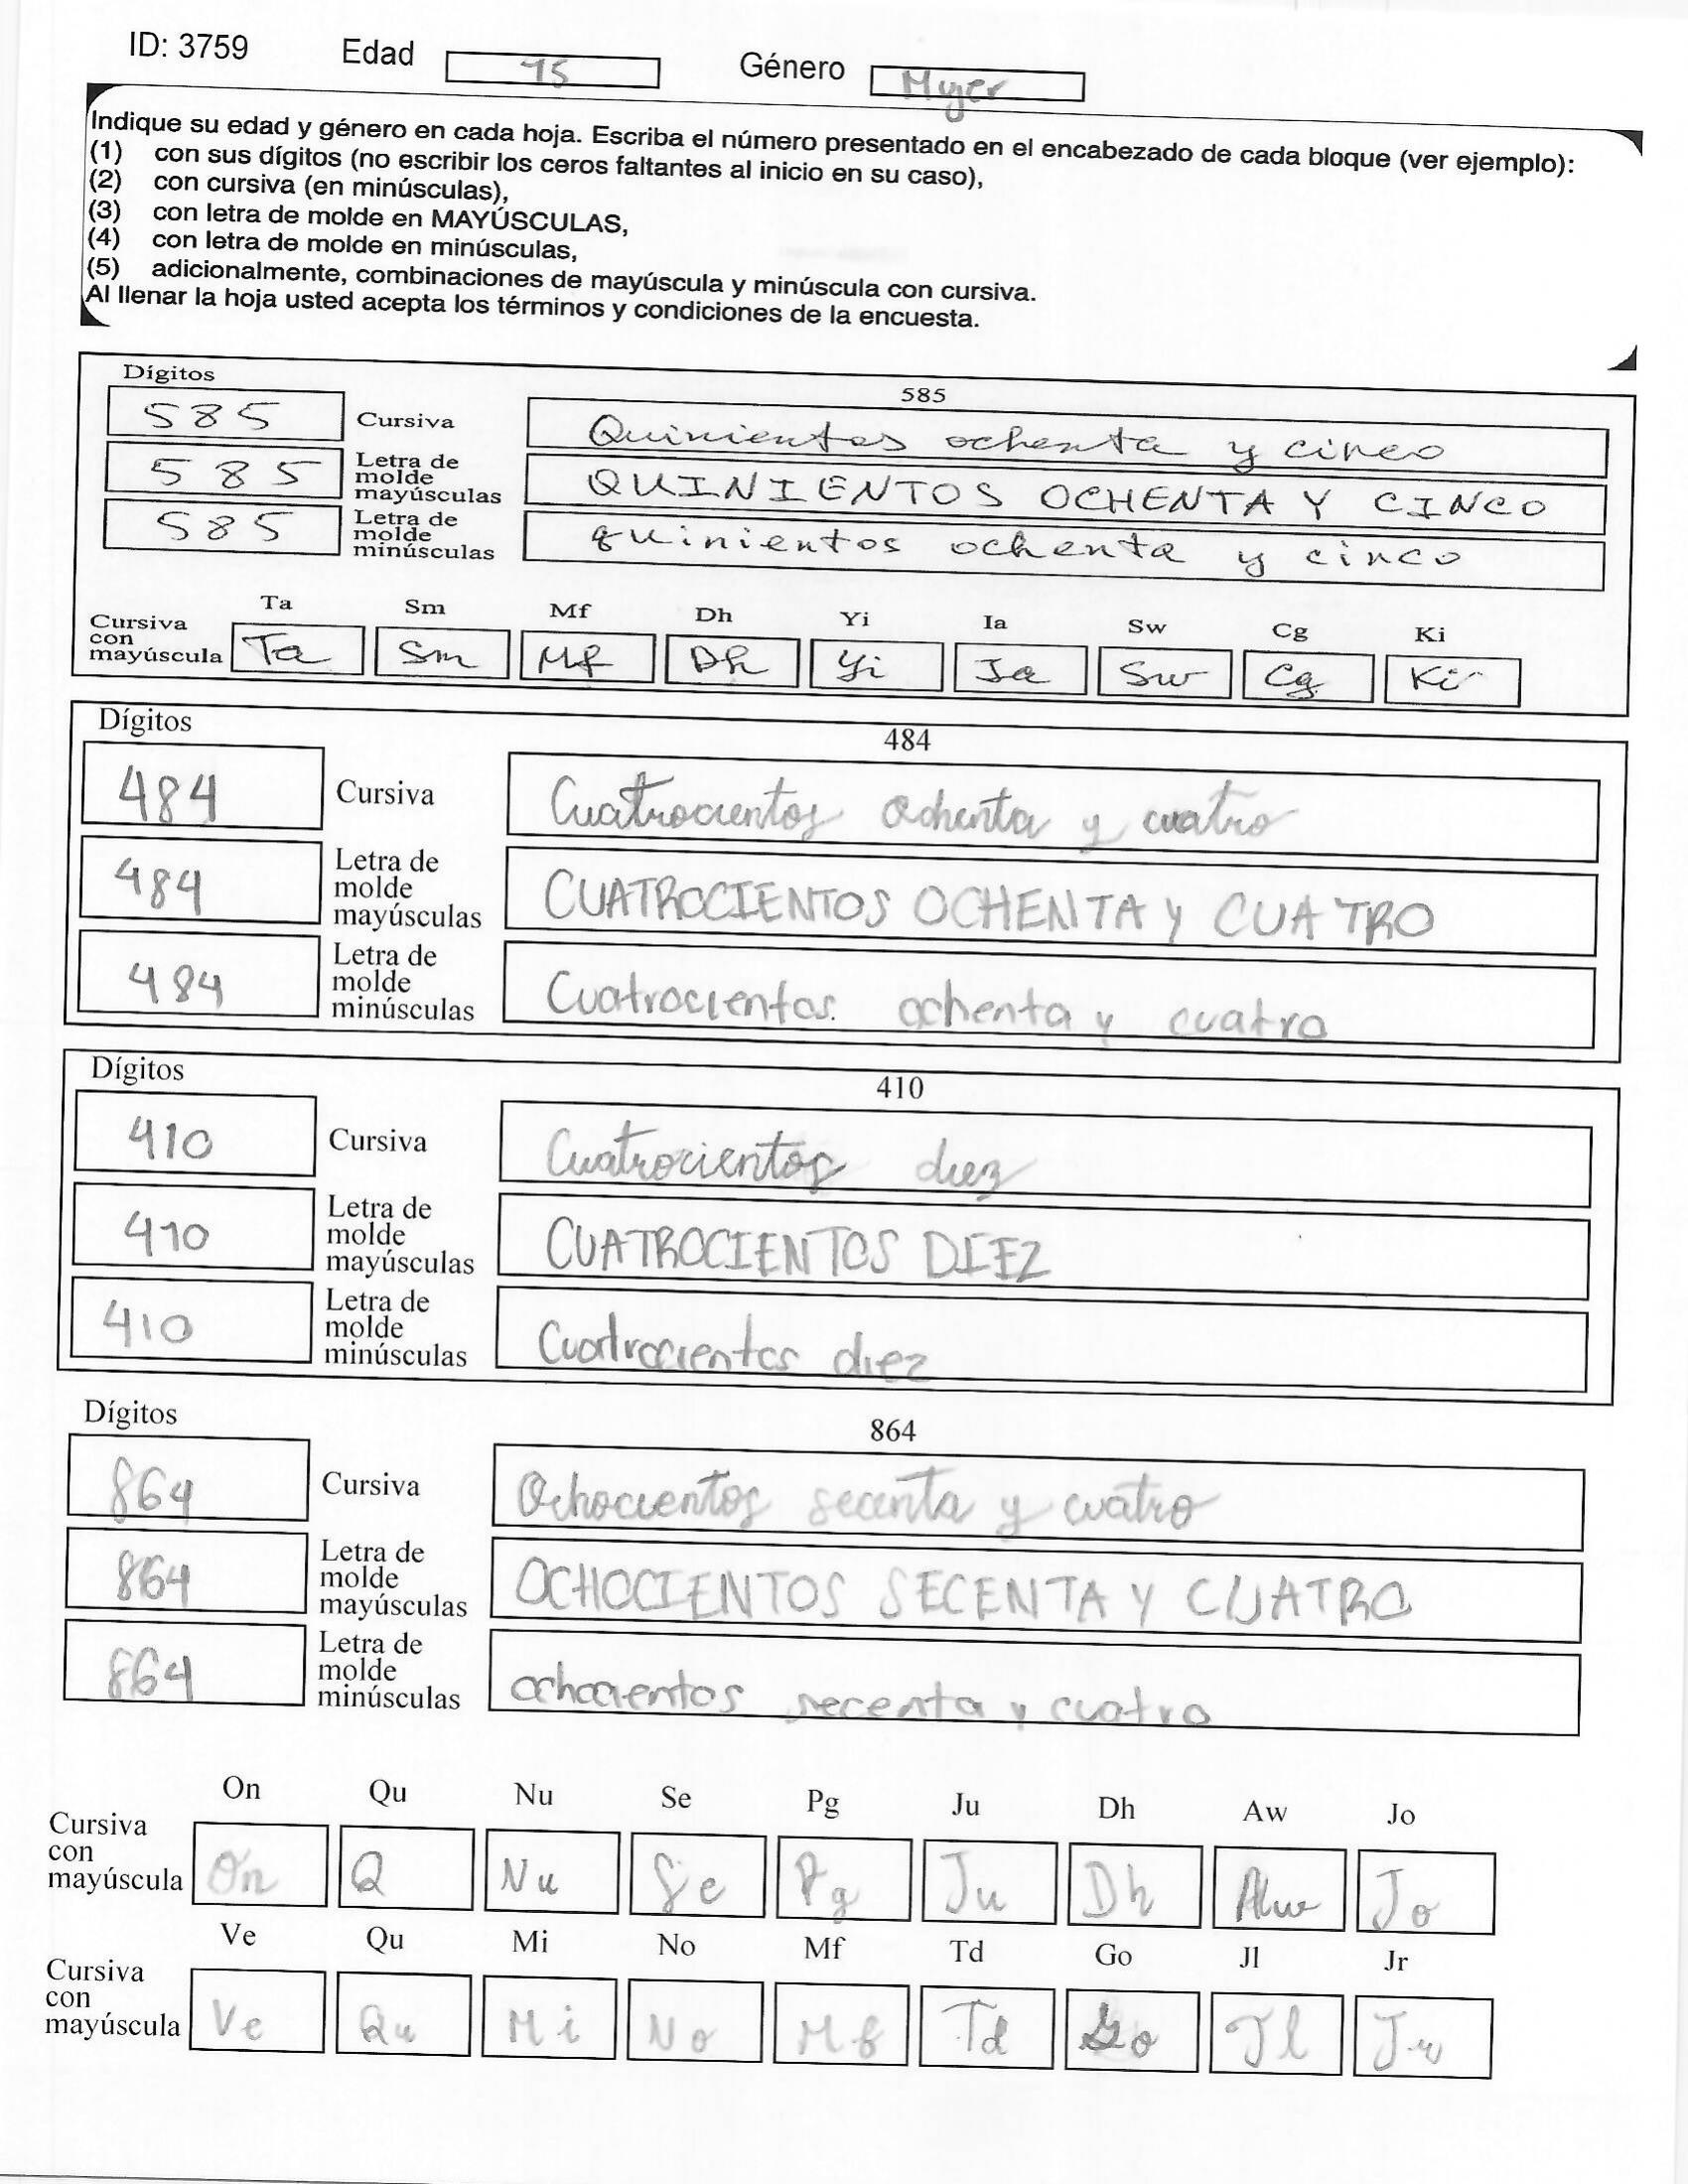 ID: 3759 Edad 15 Género Mujer
Indique su edad y género en cada hoja. Escriba el número presentado en el encabezado de cada bloque (ver ejemplo):
(1) con sus dígitos (no escribir los ceros faltantes al inicio en su caso),
(2) con cursiva (en minúsculas),
(3) con letra de molde en MAYÚSCULAS,
(4) con letra de molde en minúsculas,
(5) adicionalmente, combinaciones de mayúscula y minúscula con cursiva.
Al llenar la hoja usted acepta los términos y condiciones de la encuesta.
Dígitos 585
585 Cursiva Quinientos ochenta y cinco
585 Letra de molde mayúsculas QUINIENTOS OCHENTA Y CINCO
585 Letra de molde minúsculas quinientos ochenta y cinco
Ta Sm Mf Dh Yi Ia Sw Cg Ki
Cursiva con mayúscula Ta Sm Mf Dh Yi Ia Sw Cg Ki
Dígitos 484
484 Cursiva Cuatrocientos ochenta y cuatro
484 Letra de molde mayúsculas CUATROCIENTOS OCHENTA Y CUATRO
484 Letra de molde minúsculas Cuatrocientos ochenta y cuatro
Dígitos 410
410 Cursiva Cuatrocientos diez
410 Letra de molde mayúsculas CUATROCIENTOS DIEZ
410 Letra de molde minúsculas Cuatrocientos diez
Dígitos 864
864 Cursiva Ochocientos secenta y cuatro
864 Letra de molde mayúsculas OCHOCIENTOS SECENTA Y CUATRO
864 Letra de molde minúsculas ochocientos secenta y cuatro
On Qu Nu Se Pg Ju Dh Aw Jo
Cursiva con mayúscula On Q Nu Se Pg Ju Dh Aw Jo
Ve Qu Mi No Mf Td Go Jl Jr
Cursiva con mayúscula Ve Qu Mi No Mf Td Go Jl Jr